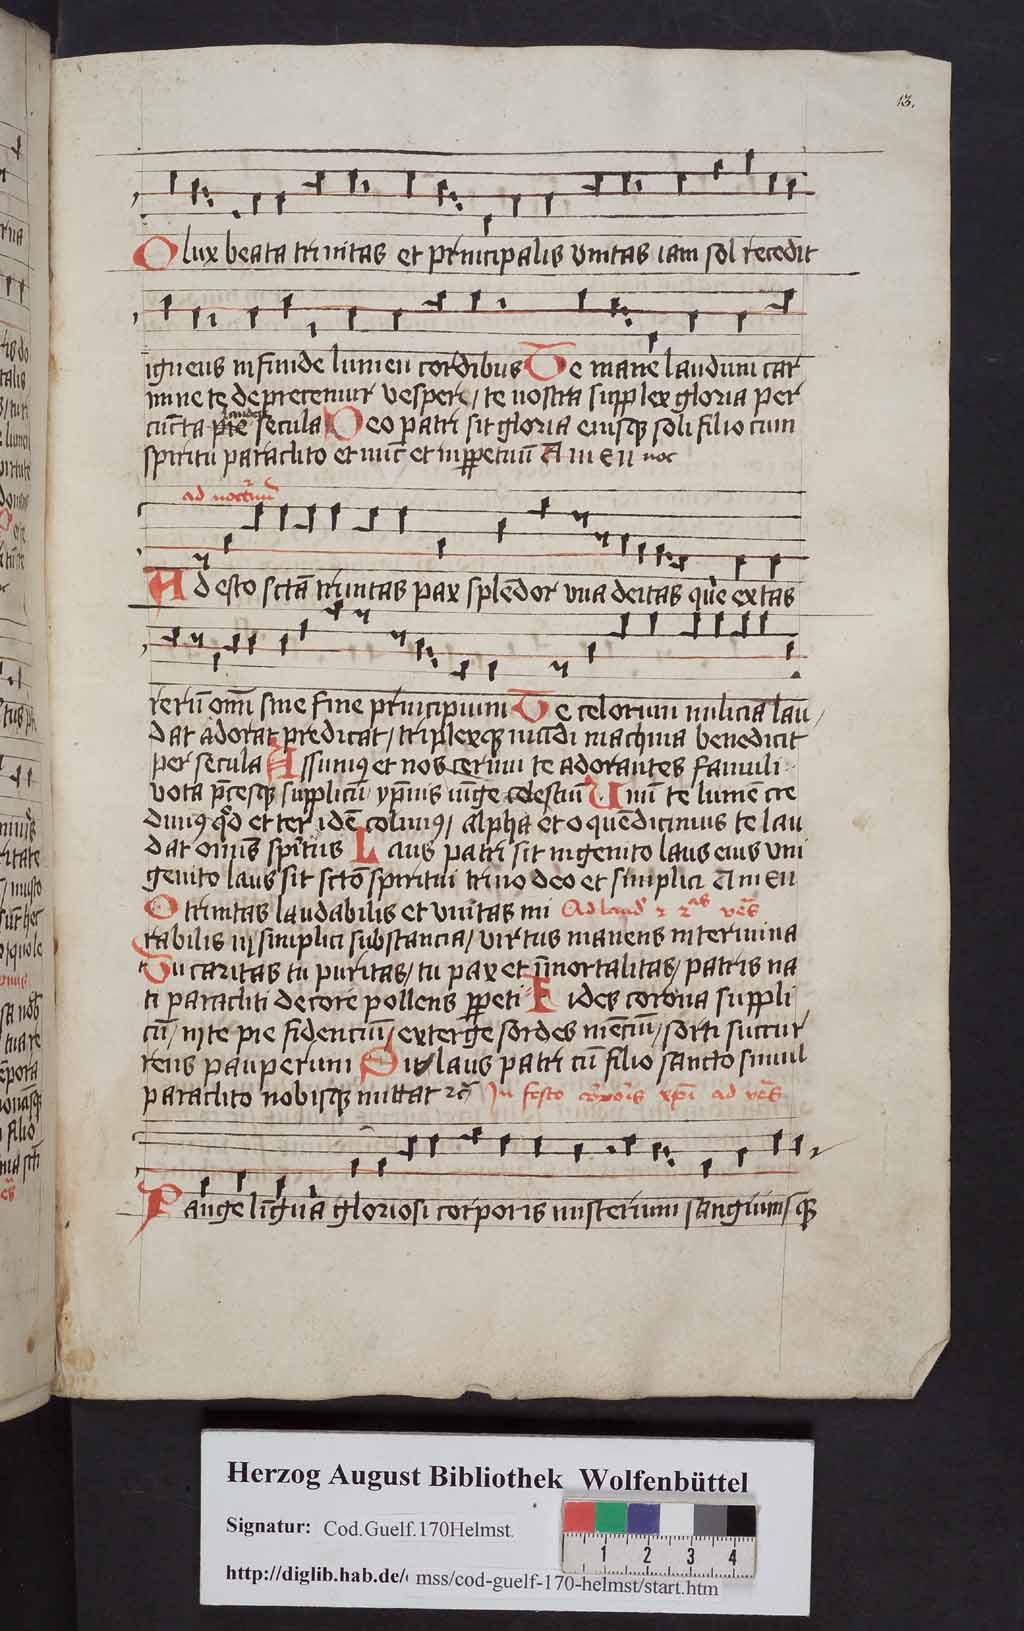 13.
O lux beata trinitas et principalis vnitas iam sol recedit
igneus infunde lumen cordibus Te mane laudum car
mine te deprecemur vespere / te nostra supplex gloria per
cuncta laudet secula Deo patri sit gloria eiusqꝫ soli filio cum
spiritu paraclito et nūc et in ꝑpetuū Amen
ad nocturnū
Adesto sctā trinitas pax splēdor vna deitas qui extas
rerū om̄ sine fine principium Te celorum milicia lau
dat adorat predicat / triplexqꝫ mūdi machina benedicit
per secula Assumꝰ et nos cernui te adorantes famuli
vota p̄cesqꝫ supplicū ypnis iūge celestiū Unū te lumē cre
dimꝰ qd̄ et ter idē colimꝰ / alpha et o quē dicimus te lau
dat omīs spiritus Laus patri sit ingenito laus eius vni
genito laus sit sctō spiritui trino deo et simplici Amen
O trinitas laudabilis et vnitas mi Ad laud
rabilis in simplici substancia / virtus manens intermina
Tu caritas tu puritas / tu pax et īmortalitas / patris na
ti paracliti decore pollens ꝑpeti Fides corona suppli
cū / in te pie fidenciū / exterge sordes mēciū / sorti succur
rens pauperum Sit laus patri cū filio sancto simul
paraclito nobisqꝫ mittat In festo corꝑis xpī ad ves
Pange lingua gloriosi corporis misterium sanguinisqꝫ
Herzog August Bibliothek Wolfenbüttel
Signatur: Cod.Guelf.170Helmst.
http://diglib.hab.de/ mss/cod-guelf-170-helmst/start.htm
1 2 3 4